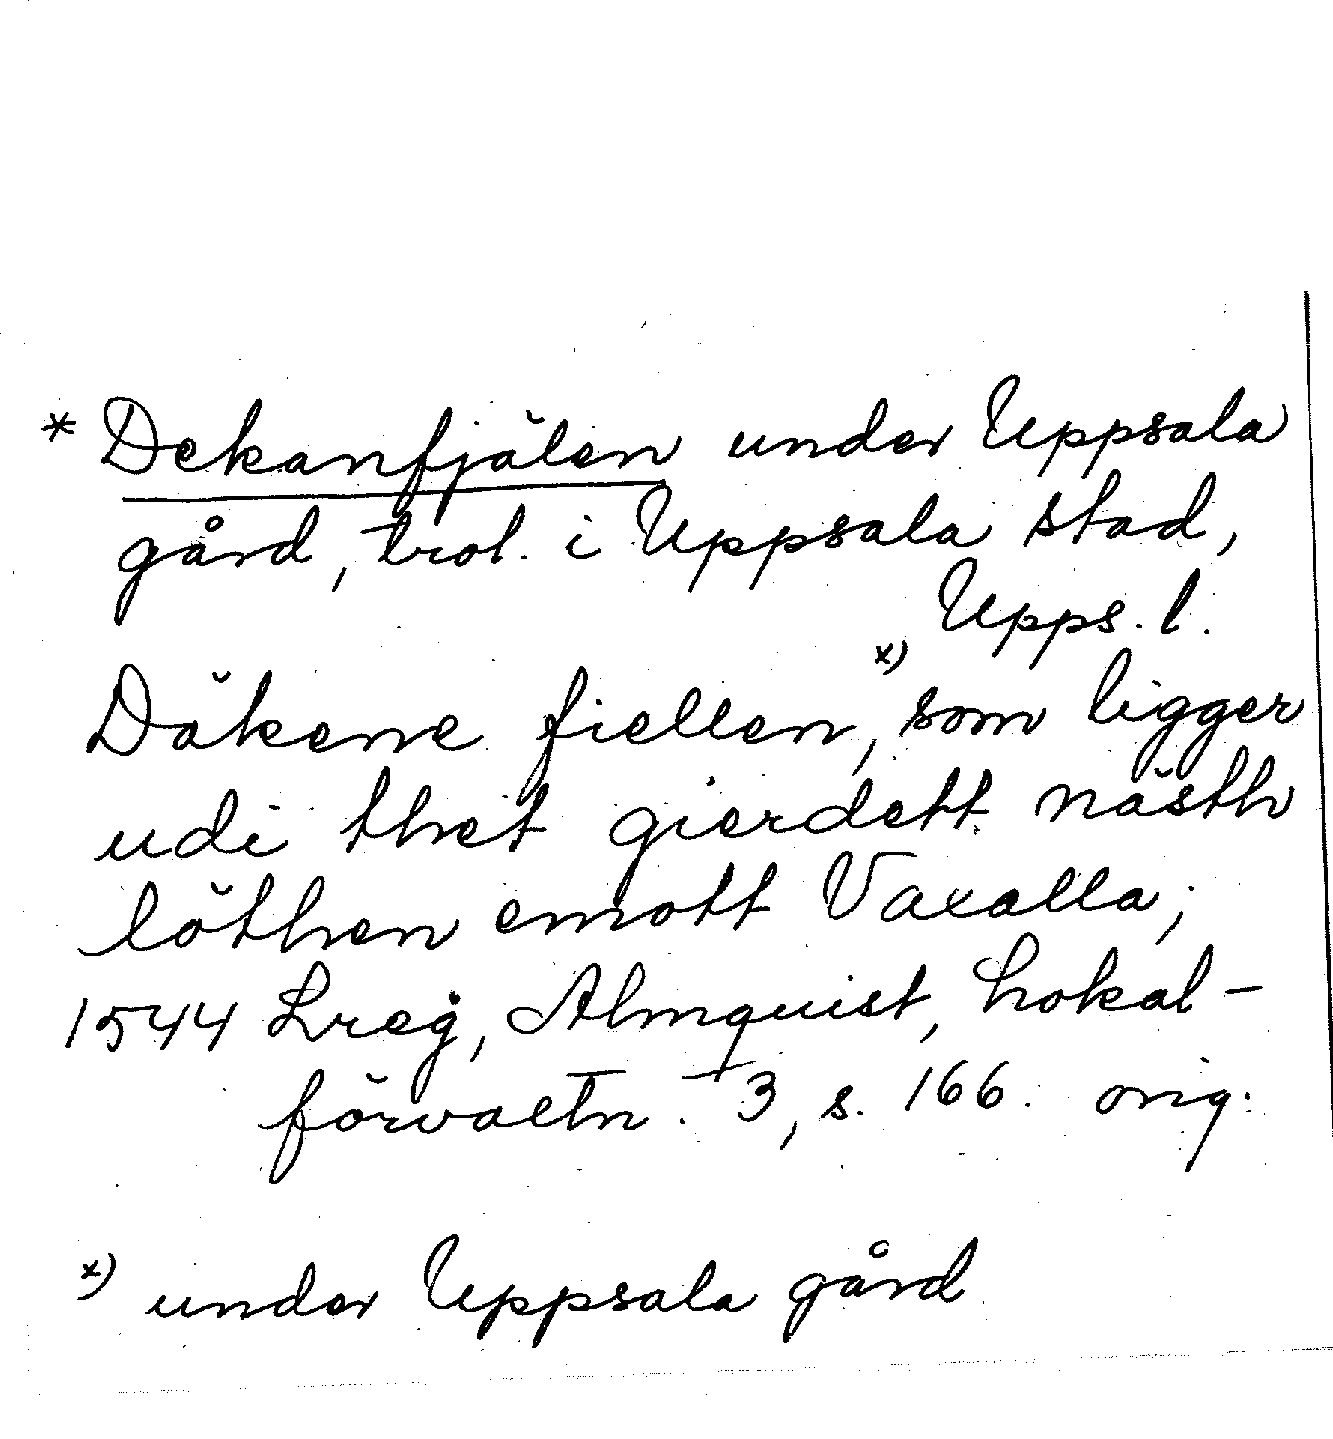 * Dekanfjälen under Uppsala
gård, trol. i Uppsala stad,
Upps. l.
Däkene fiellen, x) som ligger
udi thet gierdett näst
löthen emott Vaxalla;
1544 Lreg, Almquist, Lokal-
förvaltn. 3, s. 166. orig.
x) under Uppsala gård